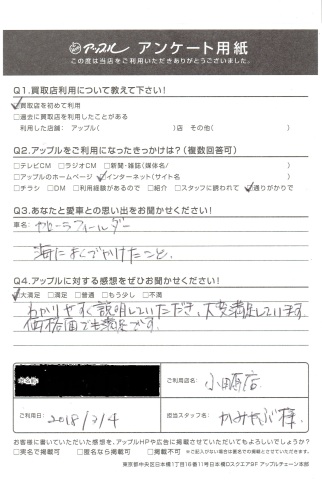 アップル アンケート用紙
この度は当店をご利用いただきありがとうございました。
Q1.買取店利用について教えて下さい!
☑買取店を初めて利用
□過去に買取店を利用したことがある
利用した店舗： アップル( )店 その他( )
Q2.アップルをご利用になったきっかけは?(複数回答可)
□テレビCM □ラジオCM □新聞・雑誌(媒体名/ )
□アップルのホームページ ☑インターネット(サイト名 )
□チラシ □DM □利用経験があるので □紹介 □スタッフに誘われて ☑通りがかりで
Q3.あなたと愛車との思い出をお聞かせください!
車名： カローラフィールダー
海によくでかけたこと。
Q4.アップルに対する感想をぜひお聞かせください!
☑大満足 □満足 □普通 □もう少し □不満
わかりやすく説明していただき、大変満足しています。
価格面でも満足です。
ご利用店名： 小田原店
ご利用日： 2018/3/4
担当スタッフ名： かみやぶ様
お客様に書いていただいた感想を、アップルHPや広告に掲載させていただいてもよろしいでしょうか?
□実名で掲載可 □匿名なら掲載可 □掲載不可 ※ご記入がない場合は匿名での掲載とさせていただきます。
東京都中央区日本橋1丁目16番11号日本橋Dスクエア9F アップルチェーン本部